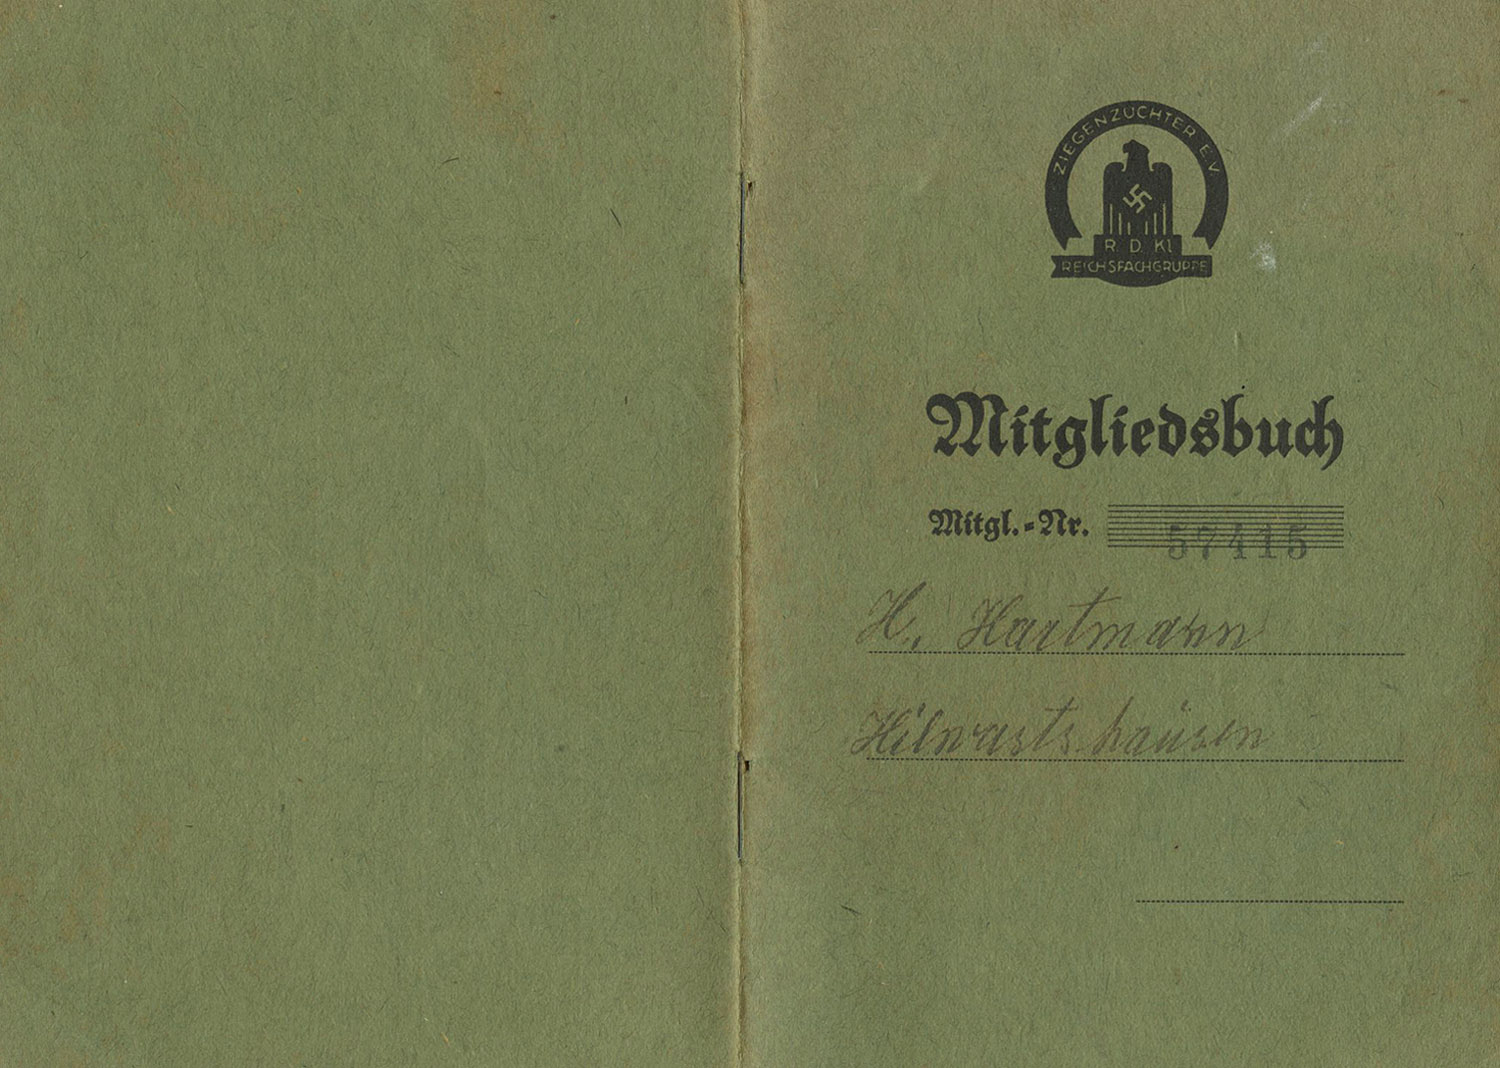 ZIEGENZÜCHTER E.V.
R. D. Kl.
REICHSFACHGRUPPE
Mitgliedsbuch
Mitgl.-Nr. 57415
H. Hartmann
Hilwartshausen